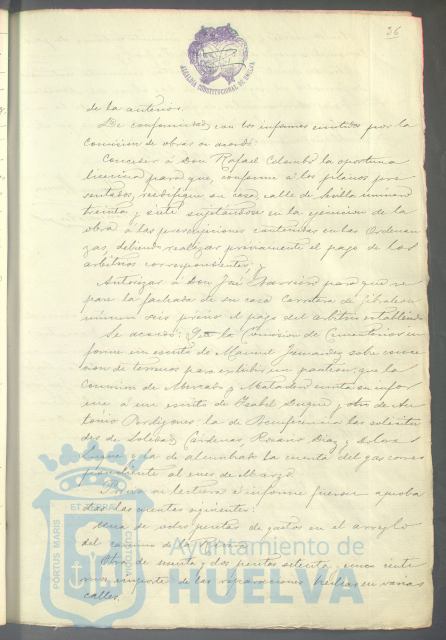 26
ALCALDIA CONSTITUCIONAL DE HUELVA
de la anterior.
De conformidad con los informes emitidos por la
Comision de obras se acordó:
Conceder á Don Rafael Colombo la oportuna
licencia para que, conforme á los planos pre
sentados, reedifique su casa calle de Sevilla número
treinta y siete sujetándose en la ejecucion de la
obra á las prescripciones contenidas en las Ordenan
zas, debiendo realizar previamente el pago de los
arbitrios correspondientes; y
Autorizar á Don José Barrios para que re
pare la fachada de su casa Carretera de Gibraleon
número seis previo el pago del arbitrio establecido
Se acordó: Que la Comision de Cementerio in
forme un escrito de Manuel Fernandez sobre conce
sion de terreno para construir un panteon: que la
Comision de Mercado y Matadero emita su infor
me á un escrito de Isabel Duque y otro de An
tonio Perdigones: la de Beneficencia las solicitu
des de Soledad Cárdenas, Rosario Diaz y
y la de alumbrado la cuenta del gas corres
pondiente al mes de Marzo.
Previa su lectura é informe fueron aproba
das las cuentas siguientes:
Una de ocho pesetas de gastos en el arreglo
del camino de la
Otra de sesenta y dos pesetas setenta y cinco cénti
mos importe de las reparaciones hechas en varias
calles.
PORTUS MARIS ET TERRAE CUSTODIA
Ayuntamiento de
HUELVA